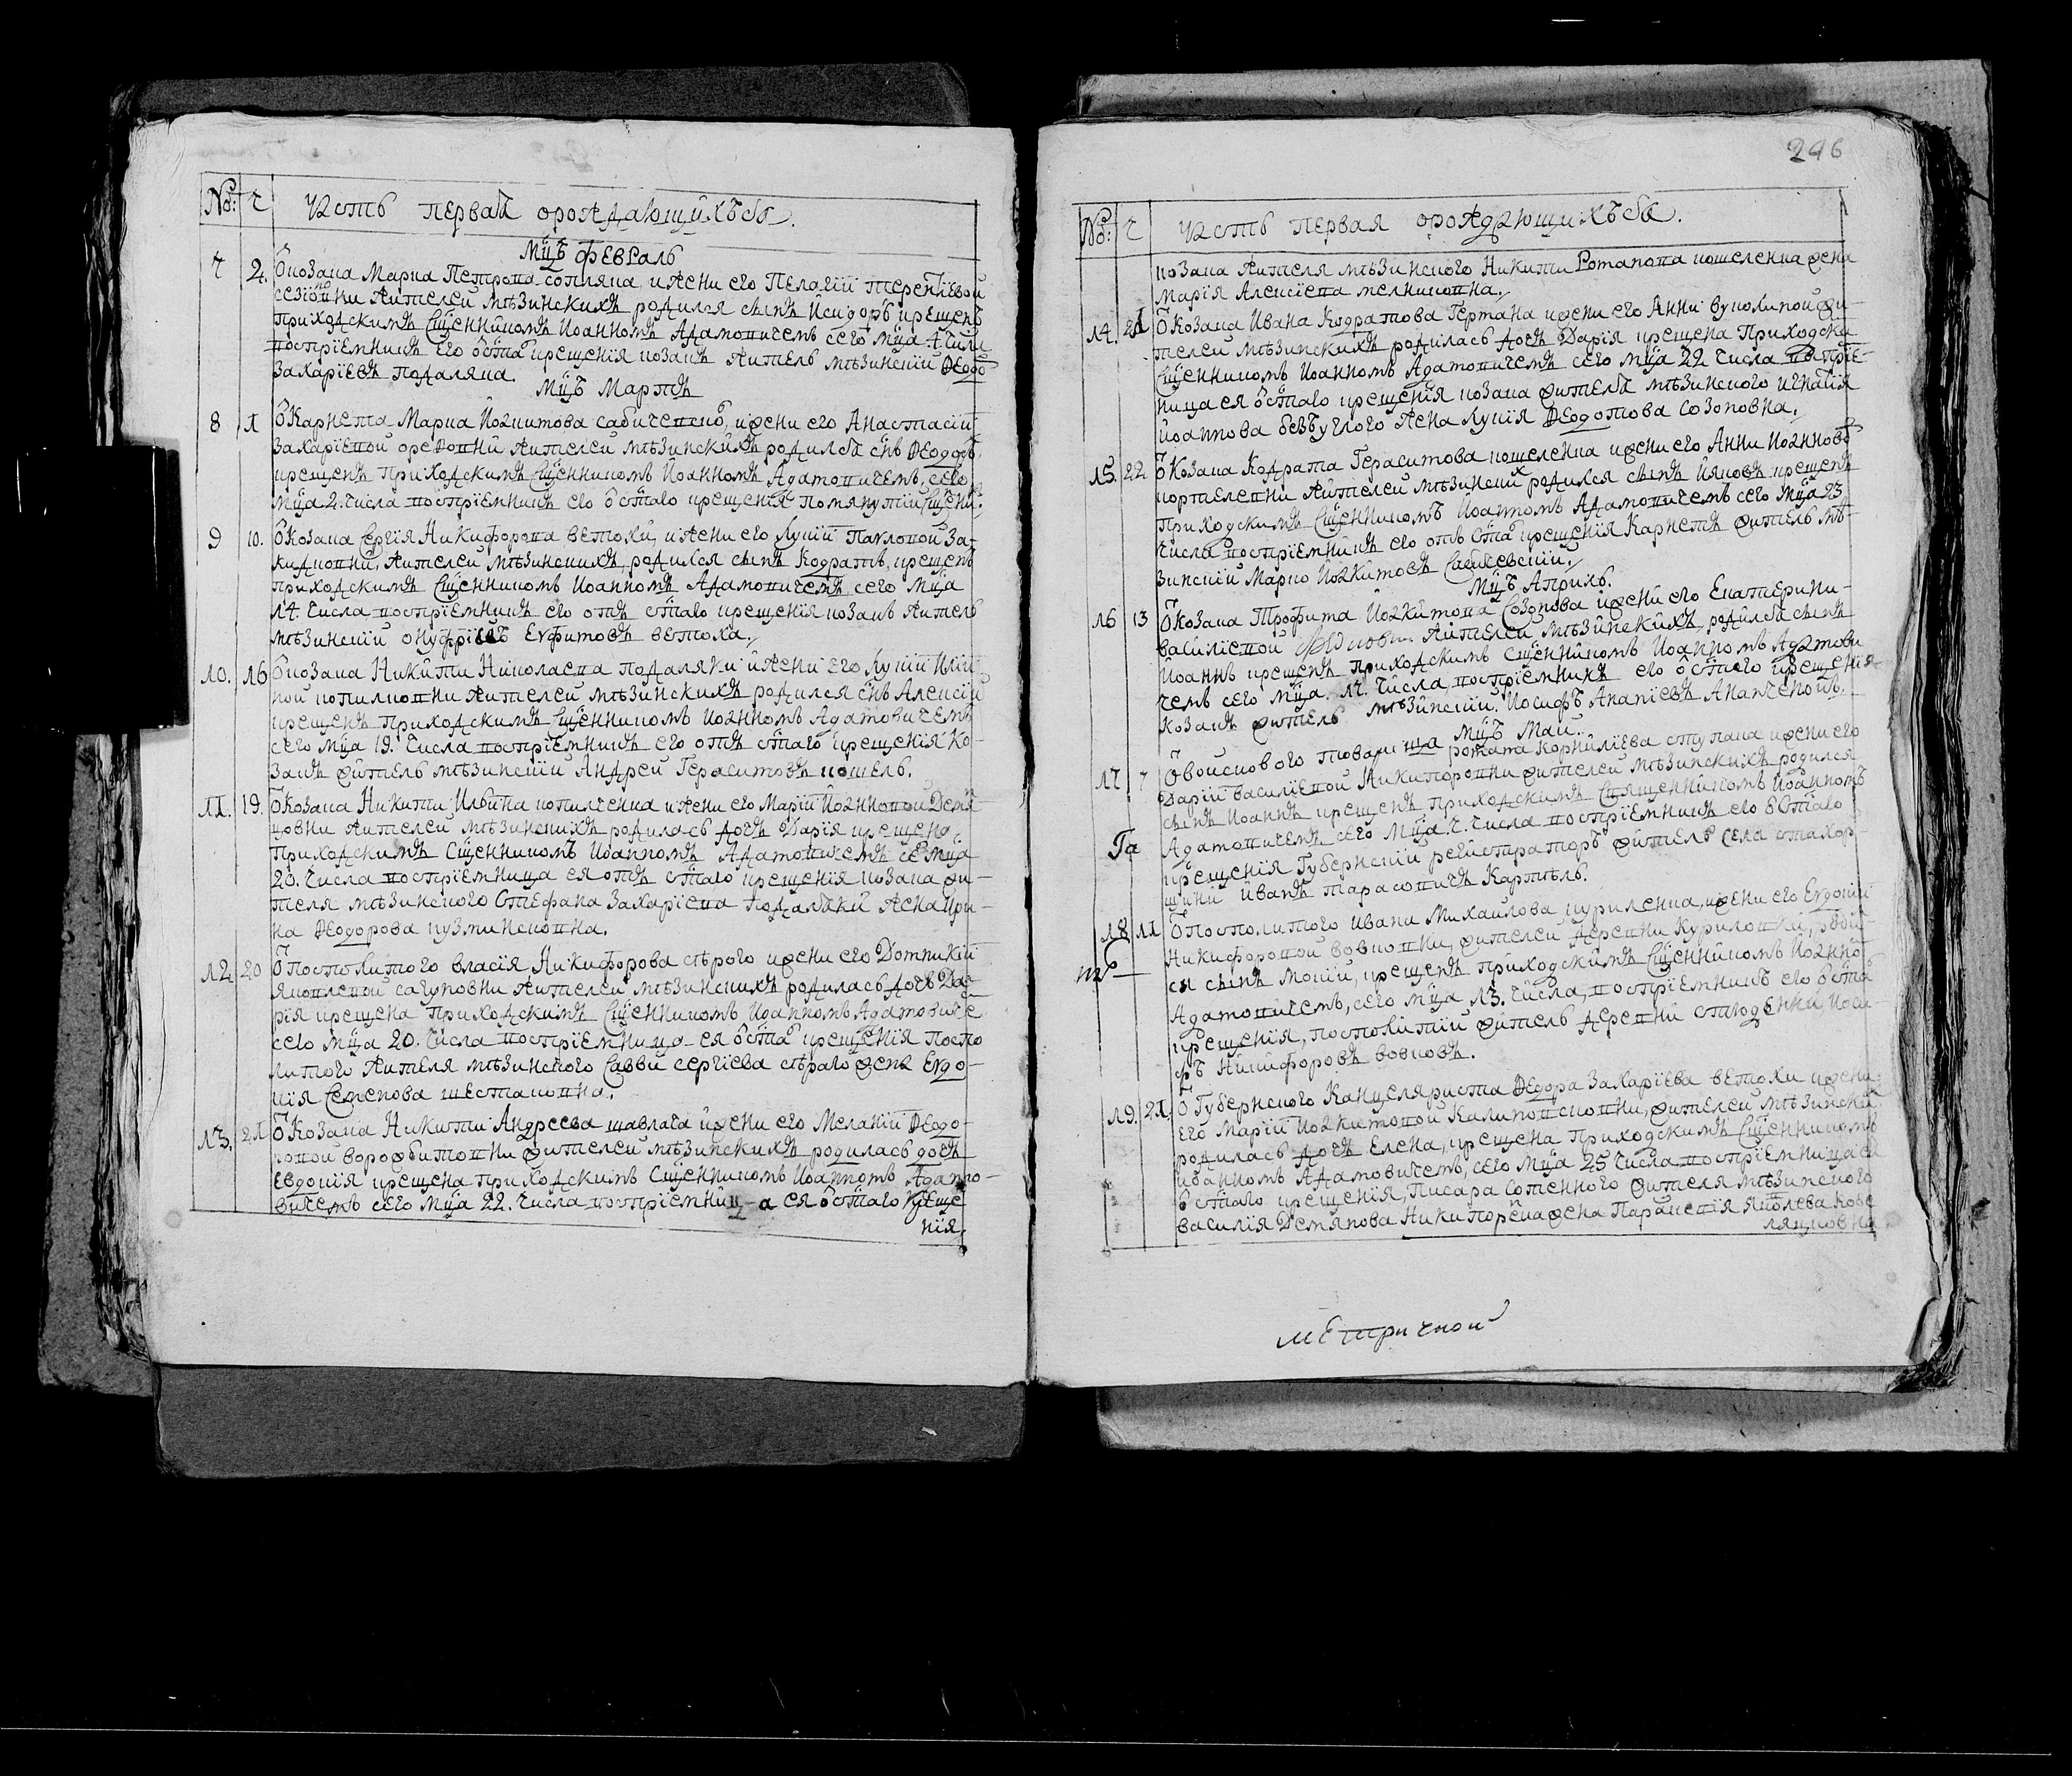 No: ч Часть первая ѡрождающихъся.
Мцъ февраль
7 2. Ѿ козака Марка Петрова сотляка, и жени его Пелагіи терентіевой
жителей мѣзинскихъ родился сынъ Исидоръ крещенъ
приходскимъ Сщенникомъ Иоанномъ Адамовичемъ сего Мца 4 числа
воспріемникъ его ѿ стаго крещенія козакъ житель мѣзинскій Ѳеодо
Захаріевъ подаляка.
Мцъ Мартъ
8 1 Ѿ Карнета Марка Иоакимова сабичевско, и жени его Анастасіи
Захаріевой жителей мѣзинскихъ родился снъ Ѳеодоръ,
крещенъ приходскимъ Сщенникомъ Иоанномъ Адамовичемъ, сего
мца 2. числа воспріемникъ его ѿ стаго крещенія помянутій Сщени:
9 10. Ѿ Козака Сергія Никифорова ветохи, и жени его Лукіи Павловой За-
жителей мѣзинскихъ, родился сынъ Кодратъ, крещенъ
приходскимъ Сщенникомъ Иоанномъ Адамовичемъ сего Мца
14. числа воспріемникъ его отъ стаго крещенія козакъ житель
мѣзинскій онуфрій Евфимовъ ветоха./
10. 16 Ѿ козака Никити Николаева подаляки и жени его Лукіи Иліи-
ной копилковни жителей мѣзинскихъ родился снъ Алексій
крещенъ приходскимъ Сщенникомъ Иоанномъ Адамовичемъ
сего мца 19. числа воспріемникъ его отъ стаго крещенія Ко-
закъ житель мѣзинскій Андрей Герасимовъ кошель.
11. 19. Ѿ Козака Никити Ильина копилченка и жени его Маріи Иоанновой Демя-
новни жителей мѣзинскихъ родилась дочь Марія крещена
приходскимъ Сщенникомъ Иоанномъ Адамовичемъ се Мца
20. числа воспріемница ея отъ стаго крещенія козака жи-
теля мѣзинского Стефана Захаріева подаляки жена Ири-
на Ѳеодорова кузминсковна.
12. 20 Ѿ посполитого власія Никифорова сѣрого и жени его Домникіи
Яковлевой сагуновни жителей мѣзинскихъ родилась дочь Да-
рія крещена приходскимъ Сщенникомъ Иоанномъ Адамовиче
сего мца 20. числа воспріемница ея ѿ стаго крещенія поспо
литого жителя мѣзинского Саввы сергіева сѣраго жена Евдо-
кія Семенова шестаковна.
13. 21 Ѿ Козака Никити Андреева шавлага и жени его Меланіи Ѳеодо-
ровой воробитовни жителей мѣзинскихъ родилась дочь
Евдокія крещена приходскимъ Сщенникомъ Иоанномъ Адамо-
вичемъ сего мца 22. числа воспріемниц-а ея ѿ стаго креще
нія.
296
No: ч Часть первая ѡрождающихъся.
козака жителя мѣзинского Никити Романова кошеленка жена
Марія Алексіева мелниковна./
14. 21 Ѿ Козака Ивана Кодратова Германа и жени его Анни жи-
телей мѣзинскихъ родилась дочь Дарія крещена приходски
Сщенникомъ Иоанномъ Адамовичемъ сего мца 22 числа воспріе-
ница ея ѿ стаго крещенія козака жителя мѣзинского игнатія
иоаннова безъуглого жена Лукія Ѳеодотова созоновна./
15. 22 Ѿ Козака Кодрата Герасимова кошеленка и жени его Анни Иоанново
жителей мѣзинских родился сынъ Иаковъ крещенъ
приходскимъ Сщенникомъ Иоанномъ Адамовичемъ сего мца 23
числа воспріемникъ его отъ стаго крещенія Карнетъ житель мѣ-
зинскій Марко Иоакимовъ Сабичевскій./
Мцъ Априль.
16 13 Ѿ Козака Трофима Иоакимова Созонова и жени его Екатерини-
василіевой жителей мѣзинскихъ, родился сынъ
Иоаннъ крещенъ приходскимъ сщенникомъ Иоанномъ Адамови
чемъ сего мца. 14. числа, воспріемникъ его ѿ стаго крещенія
козакъ житель мѣзинскій Иосифъ Ананіевъ Ананченокъ.
Мцъ Май.
17 7 Ѿ войскового товариша романа Корниліева ступака и жени его
Даріи василіевой Никипоровни жителей мѣзинскихъ родился
сынъ Иоаннъ крещенъ приходскимъ Сщенникомъ Иоанномъ
Адамовичемъ, сего мца. 7. числа воспріемникъ его ѿ стаго
крещенія Губернскій регистраторъ житель села стахор
щини Иванъ тарасовичъ Карпель.
18 11 Ѿ посполитого ивана Михаилова куриленка, и жени его Евдокіи
Никифоровой вовковни, жителей деревни Курилокъ, роди
ся сынъ Мокій, крещенъ приходскимъ Сщенникомъ Иоанно
Адамовичемъ, сего мца 13. числа, воспріемникъ его ѿ ста
крещенія, посполитій житель деревни студенки, иоси-
фъ Никифоровъ вовковъ.
19. 21. Ѿ Губернского Канцеляриста Ѳедора Захаріева ветохи и жени
его Маріи Иоакимовой Калиновсковни, жителей мѣзински
родилась дочь Елена, крещена приходскимъ Сщенникомъ
иоанномъ Адамовичемъ, сего мца 25 числа воспріемница ея
ѿ стаго крещенія, писара сотенного жителя мѣзинского
василія Демянова Никипорска жена Параскевія яковлева кове
ляшковна
метричной